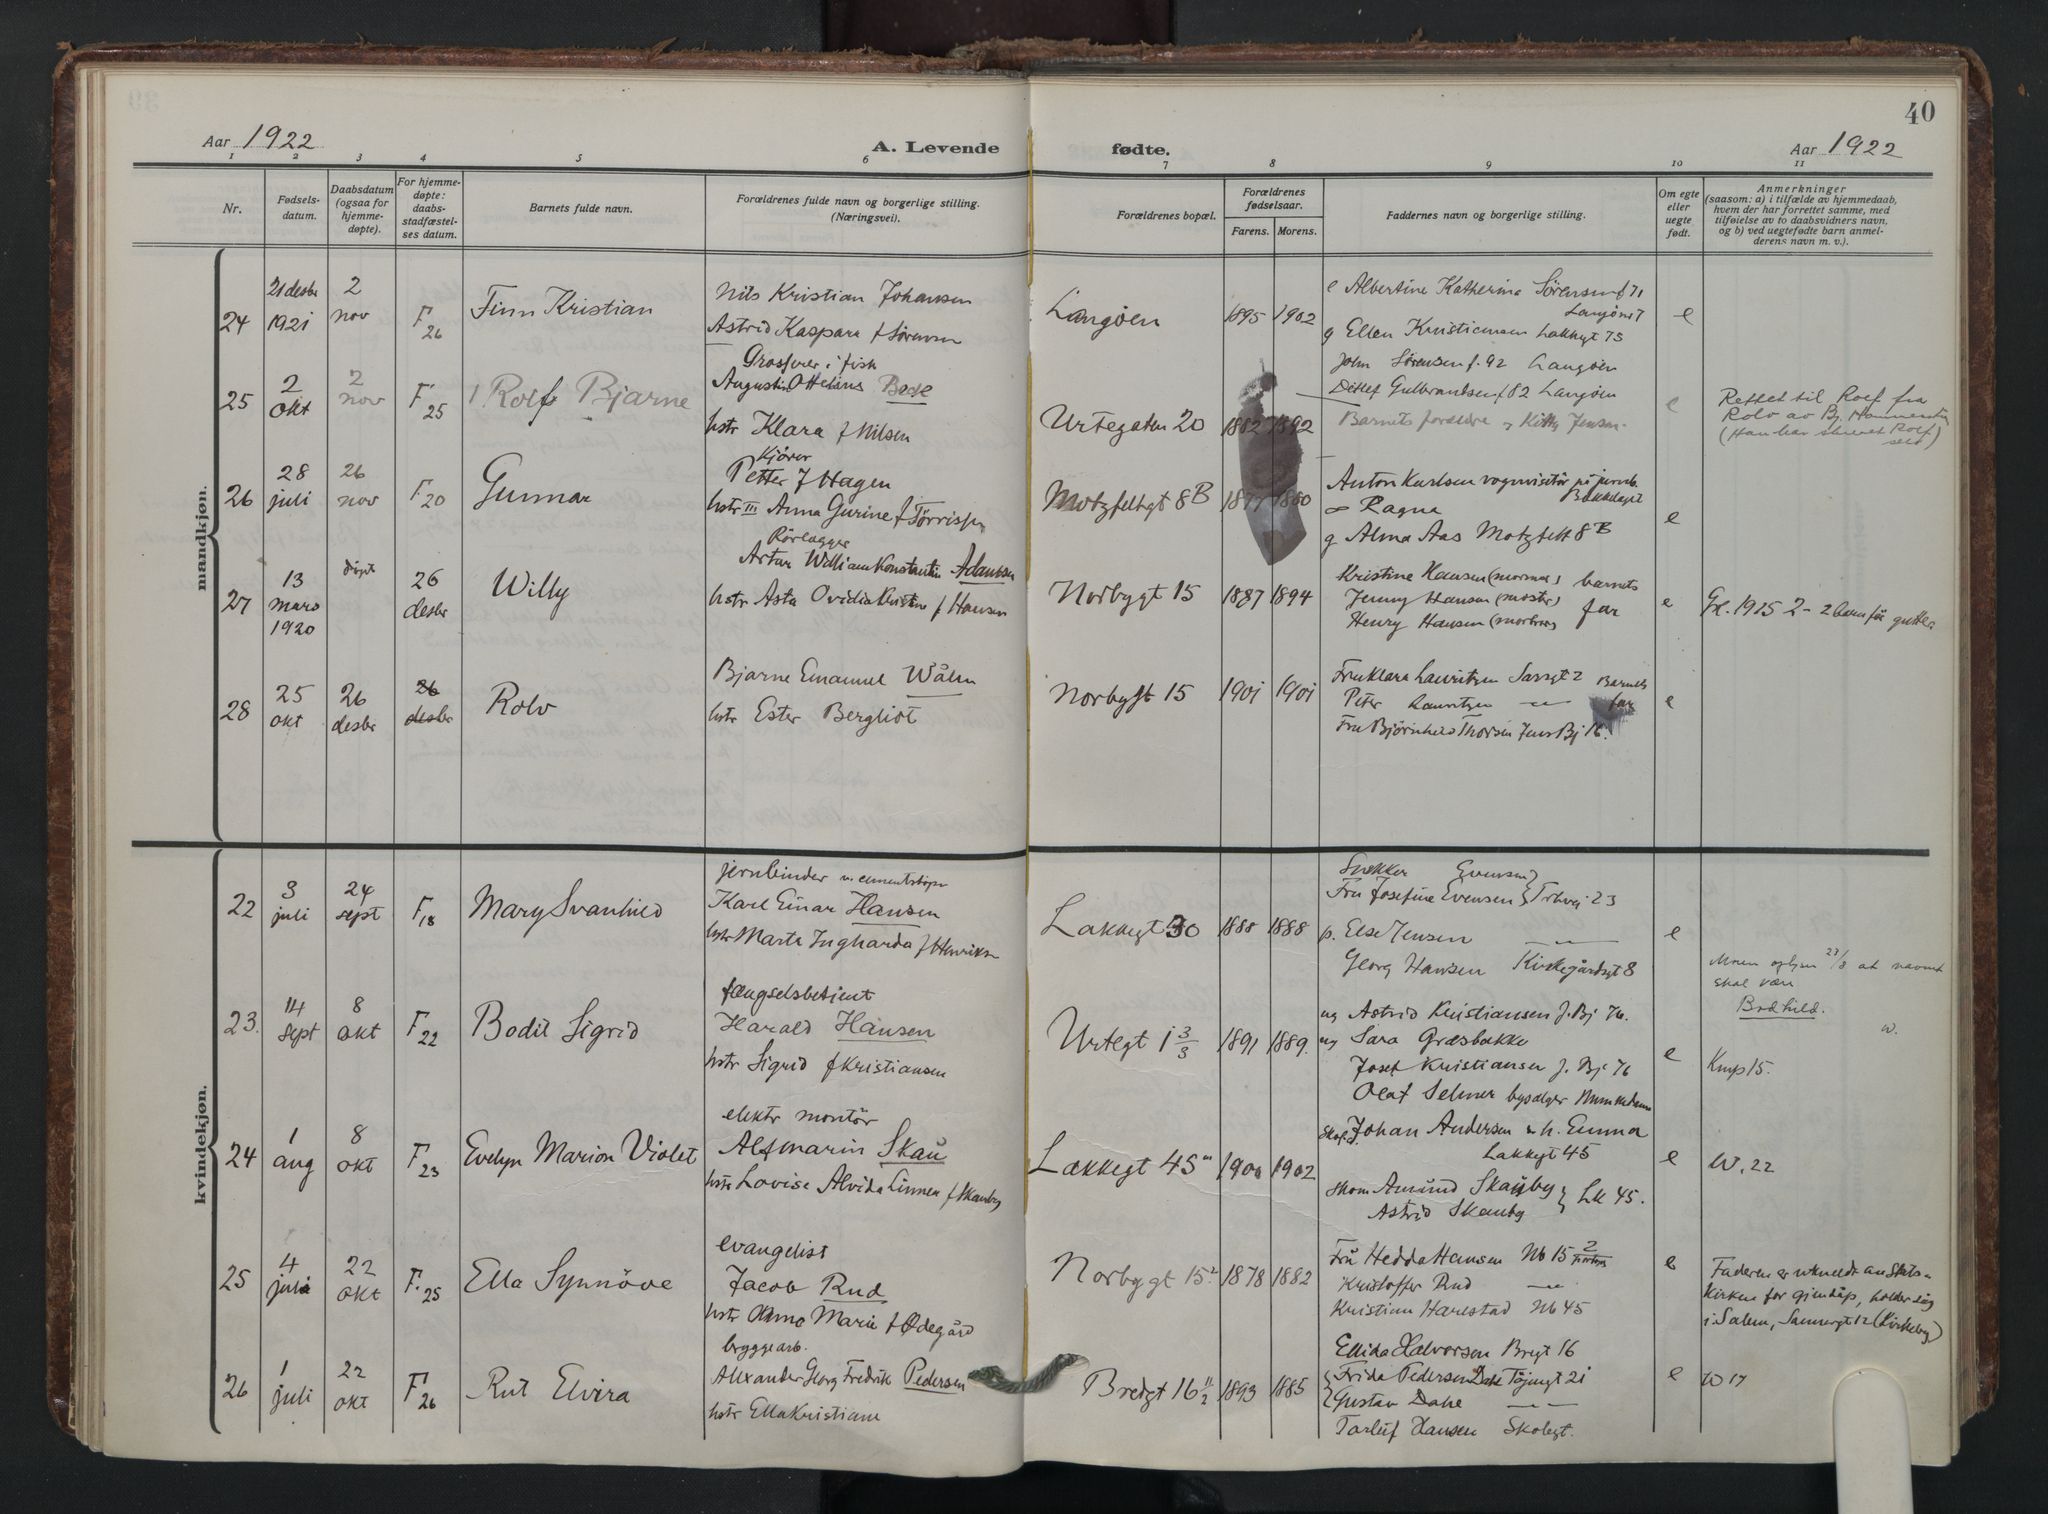 40
Aar 1922
A. Levende fødte.
Aar 1922
1 2 3 4 5 6 7 8 9 10 11
Nr.
Fødsels-
datum.
Daabsdatum
(ogsaa for
hjemme-
døpte).
For hjemme-
døpte:
daabs-
stadfæstel-
ses datum.
Barnets fulde navn.
Forældrenes fulde navn og borgerlige stilling.
(Næringsvei).
Forældrenes bopæl.
Forældrenes
fødselsaar.
Farens. Morens.
Faddernes navn og borgerlige stilling.
Om egte
eller
uegte
født.
Anmerkninger
(saasom: a) i tilfælde av hjemmedaab,
hvem der har forrettet samme, med
tilføielse av to daabsvidners navn,
og b) ved uegtefødte barn anmel-
derens navn m. v.).
mandkjøn.
24
21 desbr
1921
2
nov
F 26
Finn Kristian
Nils Kristian Johansen
Astrid Kaspara f Sørensen
Langøen
1895 1902
e Albertine Katherina Sørensen f 71
Langøen
g Ellen Kristiansen Lakkegt 75
John Sørensen f. 92 Langøen
Ditlef Gulbrandsen f 82 Langøen
e
25
2
okt
2
nov
F 25
Rolf Bjarne
Grosserer i fisk
Augustin Ottelius
hstr Klara f Nilsen
Urtegaten 20
1882 1892
Barnets forældre g Kitty Jensen.
e
Rettet til Rolf fra
Rolv av Bj.
(Han har skrevet Rolf
selv)
26
28
juli
26
nov
F 20
Gunnar
Kjører
Petter J Hagen
hstr III Anna Gurine f
Motzfeltsgt 8B
18 1880
Anton Karlsen vognvisitør på jernb.
Bakkelaget
∞ Ragna
g Alma Aas Motzfelt 8 B
e
27
13
mars
1920
døpt
26
desbr
Willy
Rørlægger
Artur William Konstantin Adamsen
hstr Asta Ovidia Kristine f Hansen
Norbygt 15
1887 1894
Kristine Hansen (mormor)
Jenny Hansen (moster)
Henry Hansen (morbror)
barnets
far
e
28
25
okt
26
desbr
26
desbr
Rolv
Bjarne Emanuel
hstr Ester Bergliot
Norbygt 15
1901 1901
Fru Klara Lauritzen 2
Peter Lauritzen —„—
Fru Bjørnhild Thorsen Jens Bj 16.
Barnets
far
e
kvindekjøn.
22
3
juli
24
sept
F 18
Mary Svanhild
jernbinder
Karl Einar Hansen
hstr Marta Ingharda f Henriksen
Lakkegt 30
1888 1888
Snekker Evensen
Fru Josefine Evensen } 23
p. Else Jensen —„—
Georg Hansen Kirkegårdsgt 8
e
23.
14
sept
8
okt
F 22
Bodil Sigrid
fængselsbetjent
Harald Hansen
hstr Sigrid f Kristiansen
Urtegt 1 3/3
1891 1889.
ug Astrid Kristiansen J. Bj 76.
ug Sara Græsbakke
Josef Kristiansen J. Bj 76
Olaf Selmer
e
Moren oplyser 23/8 at navnet
skal være
Bodhild.
W.
Kmp 15.
24
1
aug
8
okt
F 23
Evelyn Marion Violet
elektr montør
Alf Marin Skau
hstr Lovise Alvida Linnea f Skauby
Lækkegt 45
1900 1902
Johan Andersen & h. Emma
Lakkegt 45
skom Amund Skauby
Astrid Skauby } Lk 45.
e
W. 22
25
4
juli
22
okt
F. 25
Ella Synnöve
evangelist
Jacob Rud
hstr Anna Marie f Ødegård
Norbygt 15 2
1878 1882
Fru Hedda Hansen Nb 15 2
Kristoffer Rud —„—
Kristian Harestad Nb 45
e
Faderen er utmeldt av Stats-
kirken for gjendåp, holder sig
i Salem, 12 (Kirkeby)
26
1
juli
22
okt
F 26
Rut Elvira
bryggearb.
Alexander Georg Fredrik Pedersen
hstr Ella Kristiane
Bredgt 16 II/2
1893 1885
Ellida Halvorsen Bregt 16
Frida Pedersen Dahl Tøjengt 21
Gustav Dahl —„—
Hansen Skolegt.
e
W 17